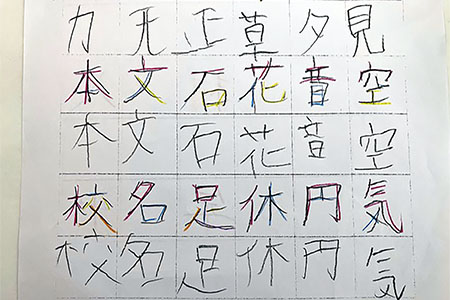 力 天 正 草 夕 見
本 文 石 花 音 空
本 文 石 花 音 空
校 名 足 休 円 気
校 名 足 休 円 気